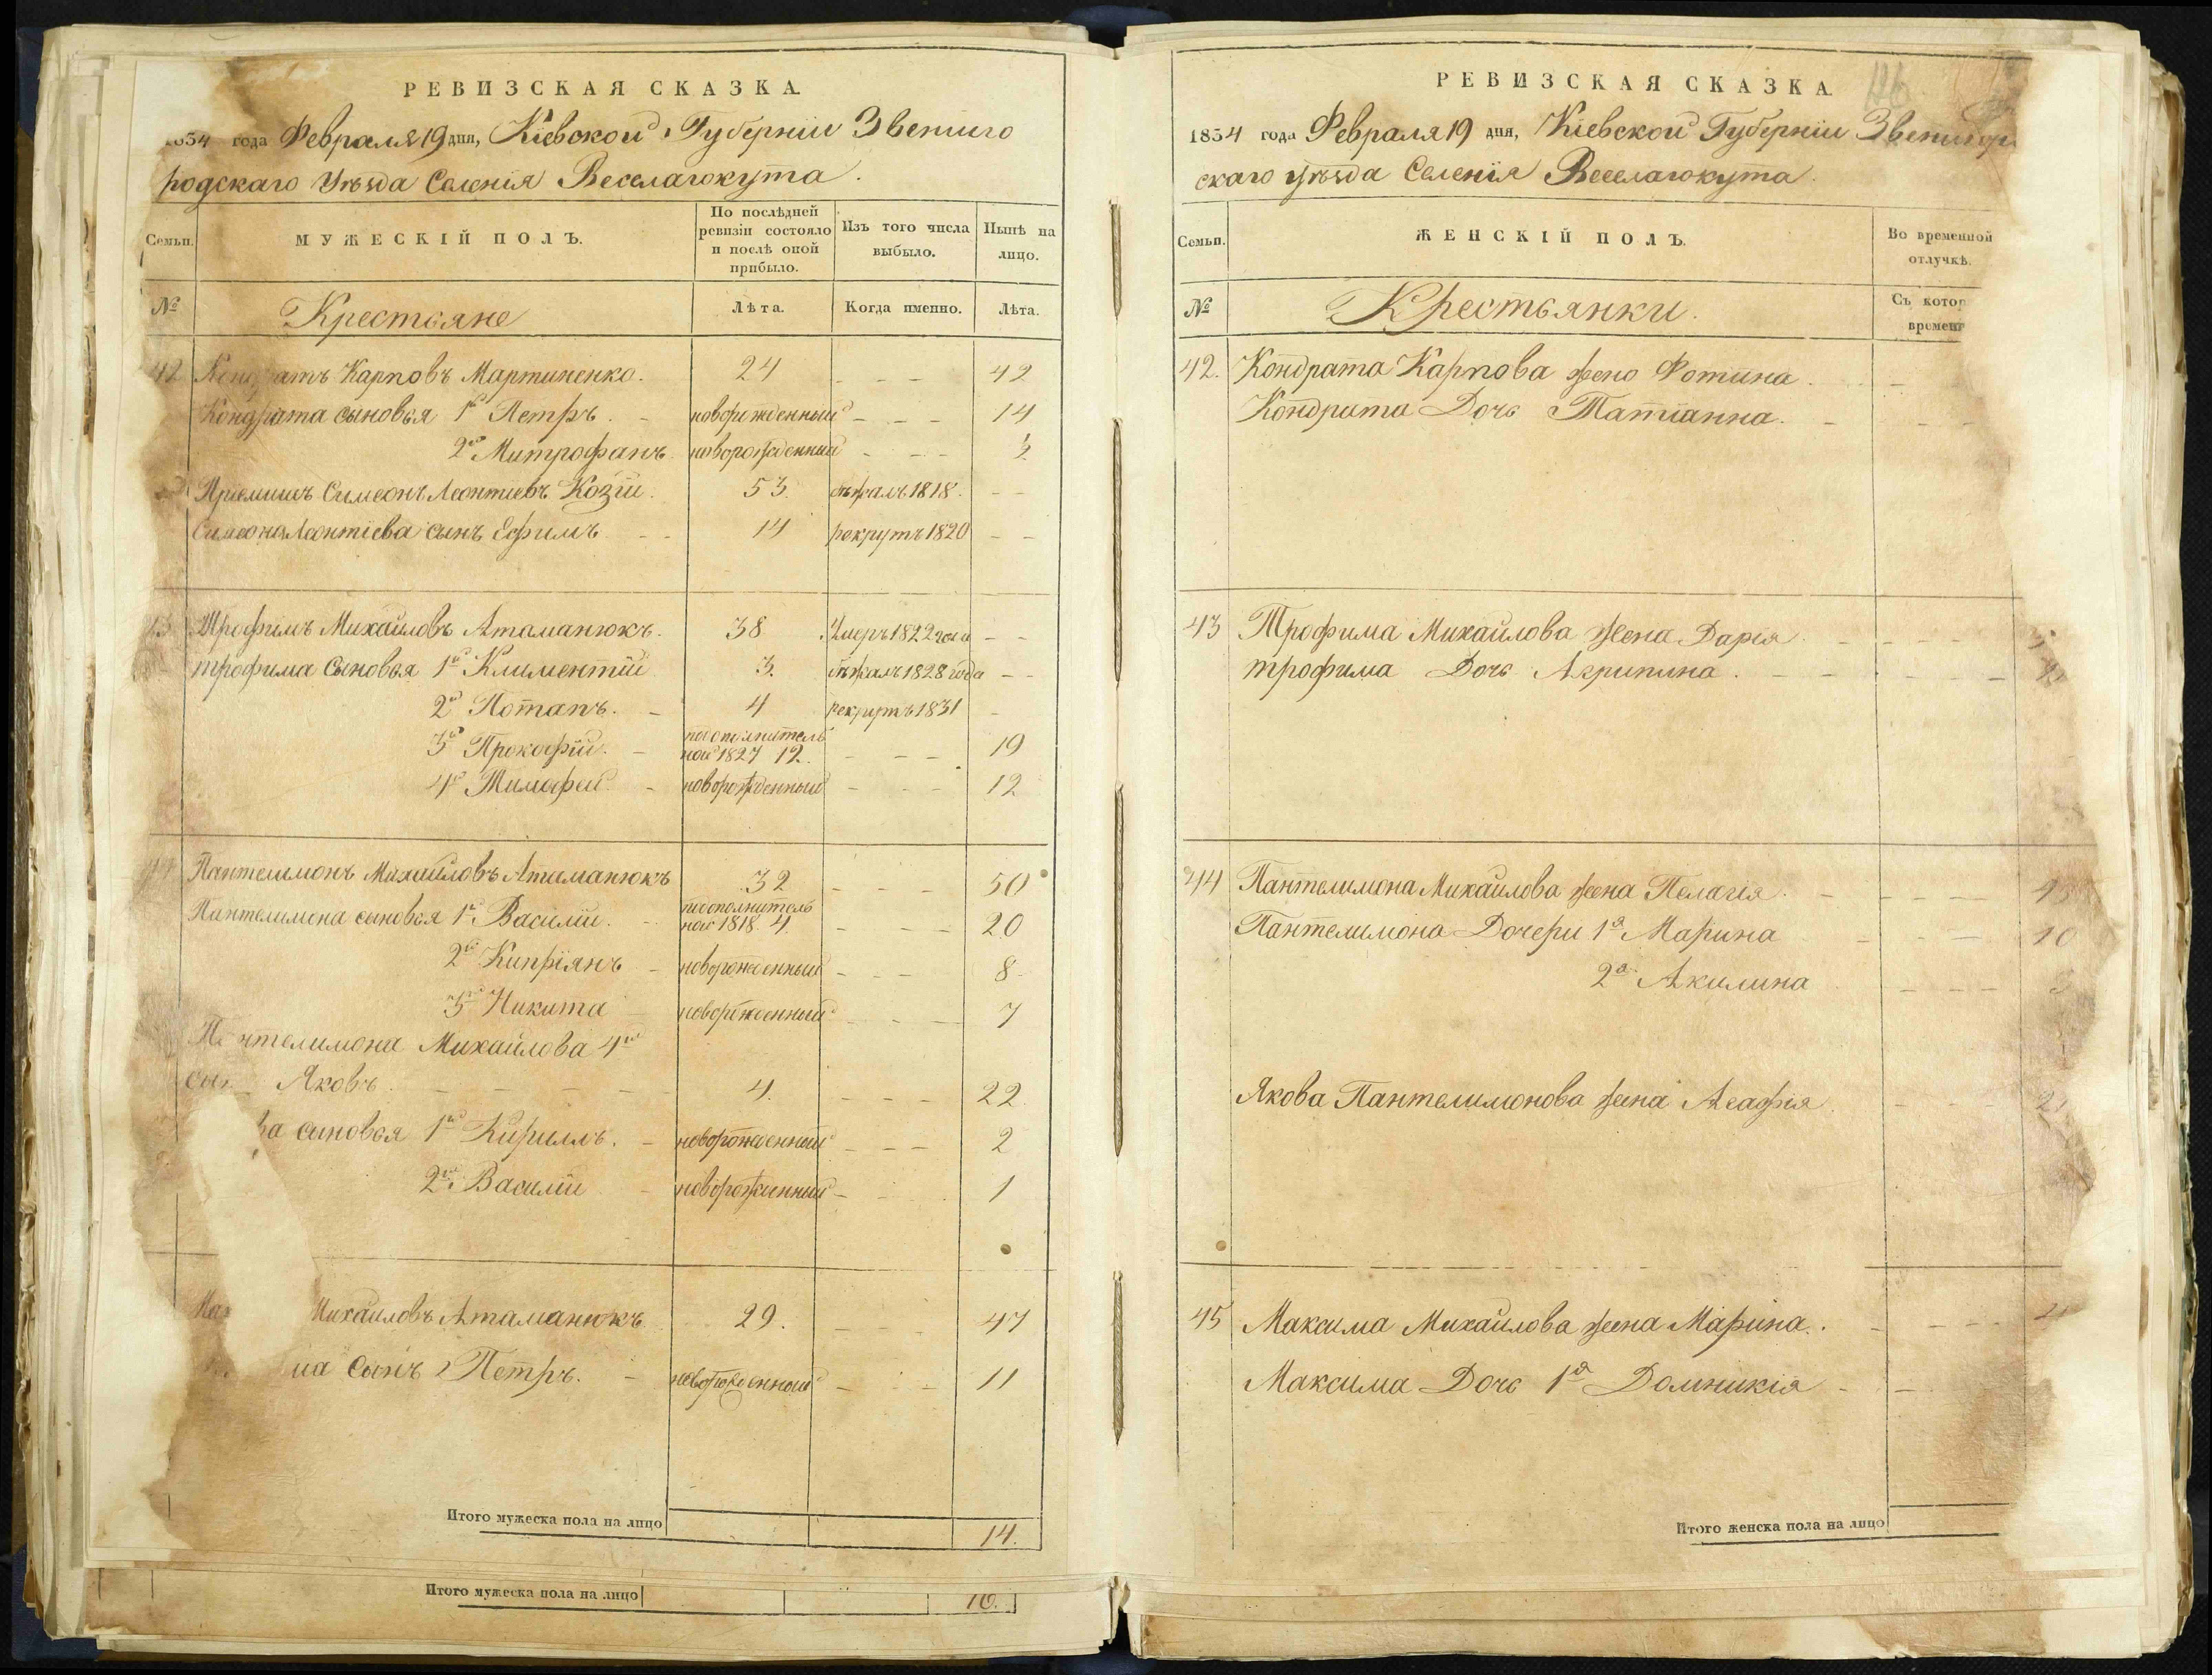 РЕВИЗСКАЯ СКАЗКА.
1834 года Февраля 19 дня, Кіевской Губерніи Звениго
родскаго Уѣзда Селенія Веселагокута.
Семьи.
МУЖЕСКІЙ ПОЛЪ.
По послѣдней ревизіи состояло и послѣ оной прибыло.
Изъ того числа выбыло.
Нынѣ на лицо.
№
Крестьяне
Лѣта.
Когда именно.
Лѣта.
42 Кондратъ Карповъ Мартиненко. 24 - - - 42
Кондрата сыновья 1й Петръ. - новорожденный - - - 14
2й Митрофанъ новорожденный - - - 3
Пріемишъ Симеонъ Леонтиевъ Козій. 53. бѣжалъ 1818. - -
Симеона Леонтіева сынъ Ефимъ - - 14 рекрутъ 1820 - -
43 Трофимъ Михайловъ Атаманюкъ. 38 Умеръ 1822 года - -
трофима Сыновья 1й Климентій 3. бѣжалъ 1828 года - -
2й Потапъ. - 4 рекрутъ 1831 -
3й Прокофій. - подополнитель
ной 1827 12. - - - 19
4й Тимофей - новорожденный - - - 12
44 Пантелимонъ Михайловъ Атаманюкъ 32 - - - 50
Пантелимона сыновья 1й Василій. - подополнитель
ной 1818. 4. - - - 20
2й Кипріянъ - новорожденный - - - 8
3й Никита - новорожденный - - - 7
Пантелимона Михайлова 4й
сынъ Яковъ. - - - - 4. - - - 22.
ва сыновья 1й Кирилъ. - новорожденный - - - 2
2й Василій - новорожденный - - - 1
Михайловъ Атаманюкъ 29. - - - 47
ма Сынъ Петръ. - новорожденный - - - 11
Итого мужеска пола на лицо 14.
Итого мужеска пола на лицо 10.
РЕВИЗСКАЯ СКАЗКА.
1834 года Февраля 19 дня, Кіевской Губерніи Звенигор
скаго уѣзда Селенія Веселагокута.
Семьи.
ЖЕНСКІЙ ПОЛЪ.
Во временной отлучкѣ.
№
Крестьянки.
Съ котор
времени
42. Кондрата Карпова жено Фотина.
Кондрата Дочь Татіанна.
43 Трофима Михайлова жена Дарья.
трофима Дочь Агрипина.
44 Пантелимона Михайлова жена Пелагія.
Пантелимона Дочери 1я Марина 10
2я Акилина
Якова Пантелимонова жена Агафія
45 Максима Михайлова жена Марина.
Максима Дочь 1я Домникія
Итого женска пола на лицо